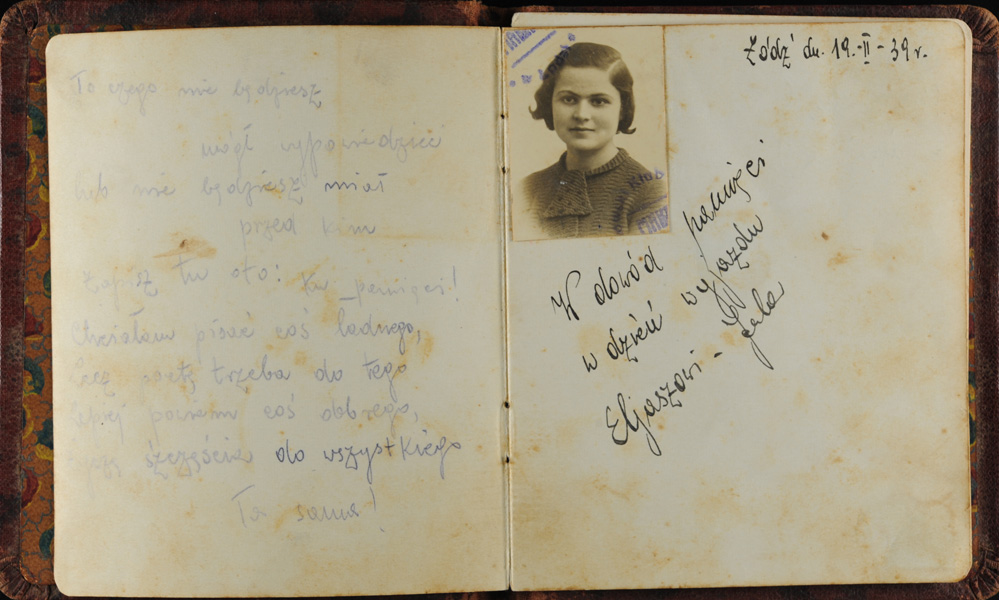 To czego nie będziesz
mógł wypowiedzieć
lub nie będziesz miał
przed kim
Zapisz tu oto:
Ku pamięci!
Chciałam pisać coś ładnego,
Lecz trzeba do tego
Lepiej powiem coś dobrego,
szczęścia do wszystkiego
Ta sama!
Łódź dn. 19.-II-39r.
W dowód pamięci
w dzień wyjazdu
Eljaszowi -